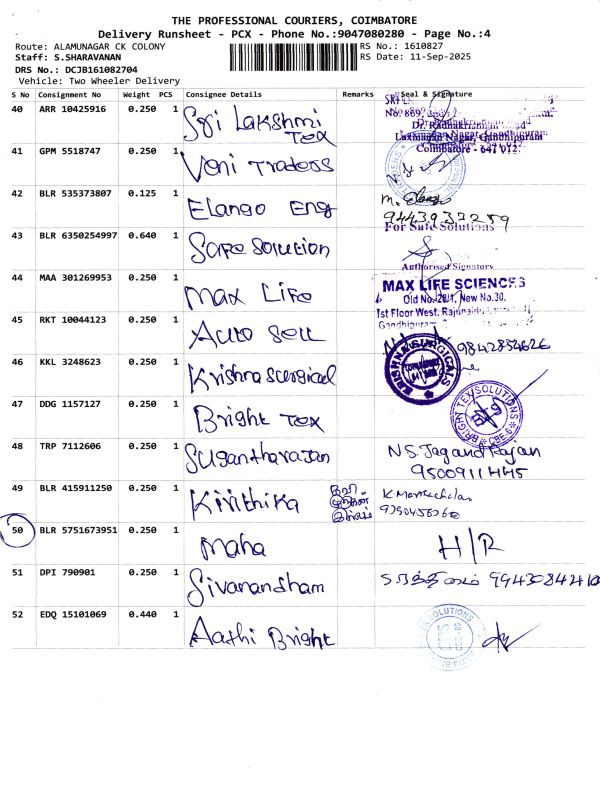 THE PROFESSIONAL COURIERS, COIMBATORE
Delivery Runsheet - PCX - Phone No.:9047080280 - Page No.:4
Route: ALAMUNAGAR CK COLONY
RS No.: 1610827
Staff: S.SHARAVANAN
RS Date: 11-Sep-2025
DRS No.: DCJB161082704
Vehicle: Two Wheeler Delivery
S No Consignment No Weight PCS Consignee Details Remarks Seal & Signature
40 ARR 10425916 0.250 1 Sri Lakshmi Tex
No. 869, 2nd
Dr. Radhakrishnan Road
Laxmanan Nagar, Gandhipuram
Coimbatore - 641 012.
41 GPM 5518747 0.250 1 Veni Traders
42 BLR 535373807 0.125 1 Elango Eng
43 BLR 6350254997 0.640 1 Safe Solution
For Safe Solutions
Authorised Signatory
44 MAA 301269953 0.250 1 Max Life
MAX LIFE SCIENCES
Old No. 28/1, New No.30.
1st Floor West,
Gandhipuram
45 RKT 10044123 0.250 1 Auto Sell
9842854626
46 KKL 3248623 0.250 1 Krishna Surgical
KRISHNA SURGICALS
47 DDG 1157127 0.250 1 Bright Tex
BRIGHT TEX SOLUTIONS
CBE-6
48 TRP 7112606 0.250 1 Sugantharajan
N S. Jagandrajan
9500911445
49 BLR 415911250 0.250 1 Kirithika
50 BLR 5751673951 0.250 1 Maha H/R
51 DPI 790901 0.250 1 Sivanandham 9943084241
52 EDQ 15101069 0.440 1 Aathi Bright
SOLUTIONS